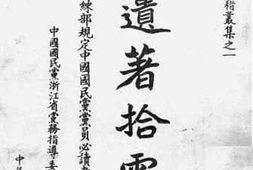 叢集之一
遺著拾零
練部規定中國國民黨黨員必讀
中國國民黨浙江省黨務指導委
中